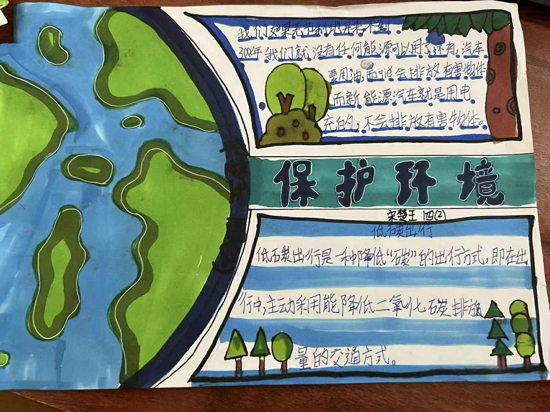 300年我们就没有任何能源可以用了还有,汽车
要用油,而且会排放有害物体
而新能源汽车就是用电
充的,不会排放有害物体。
保护环境
四(2)
低碳出行
低碳出行是一种降低“碳”的出行方式,即在出
行中,主动采用能降低二氧化碳排放
量的交通方式。